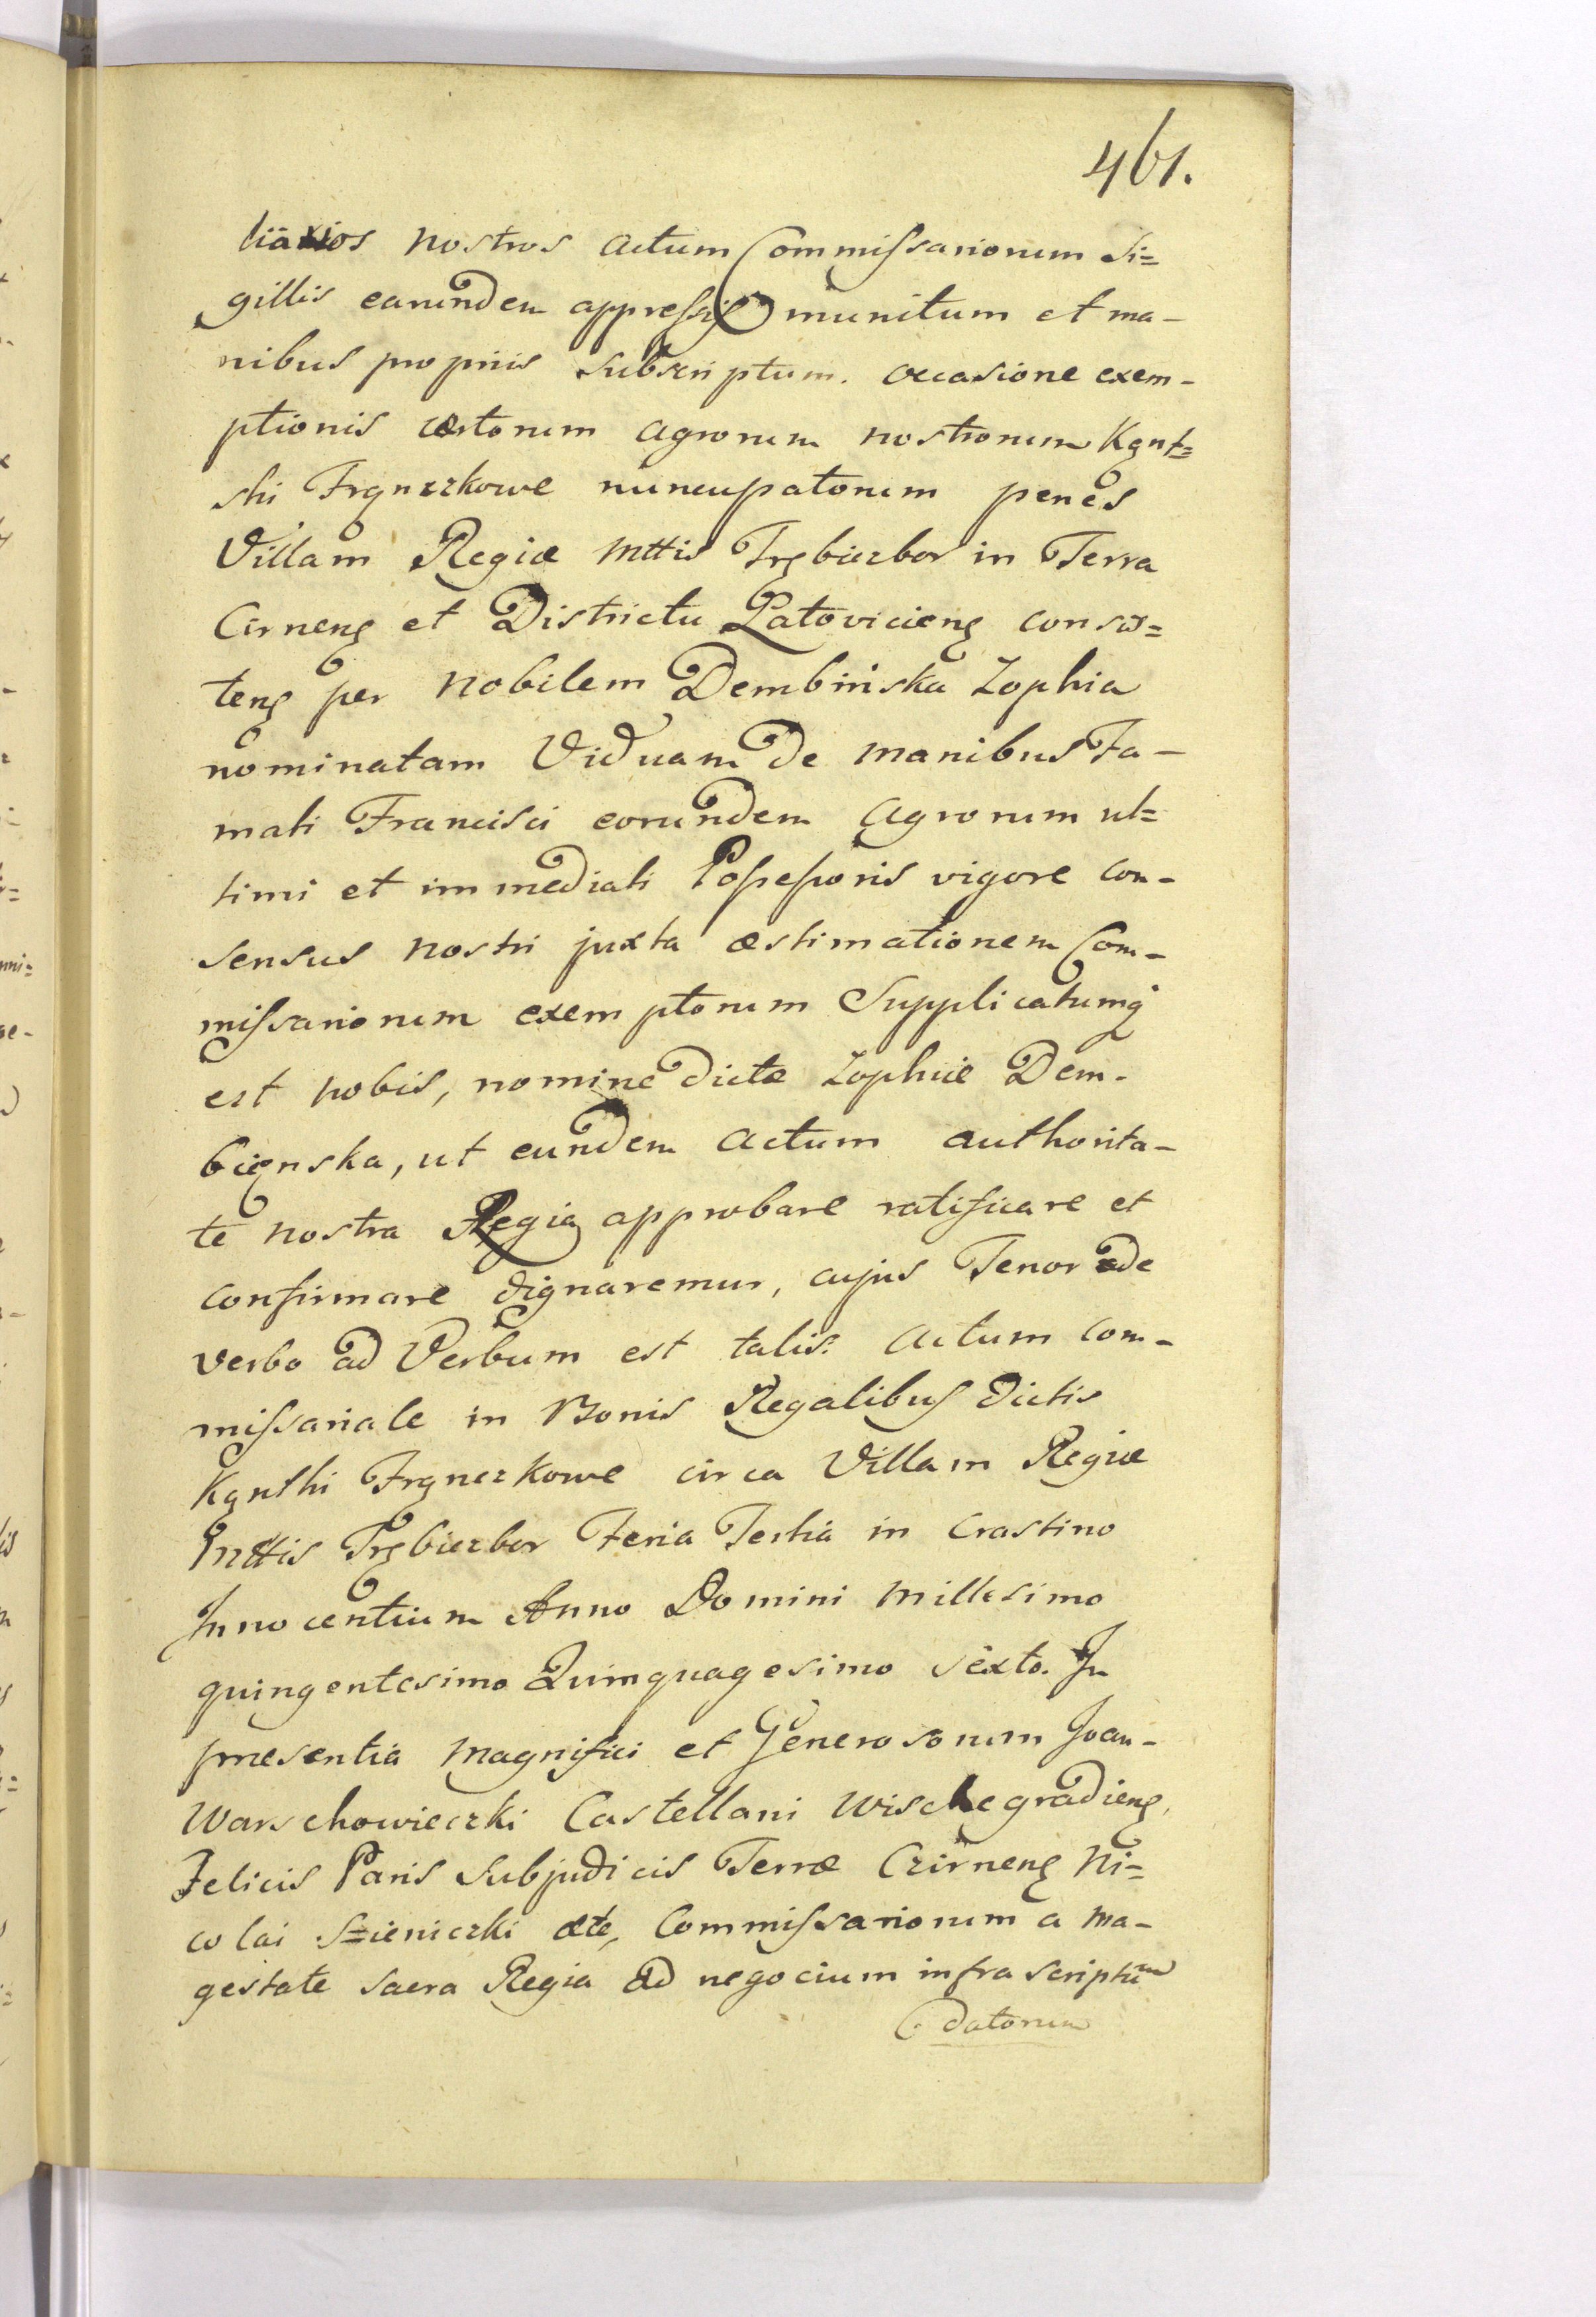 461.
liarios nostros actum Commissariorum Si=
gillis earundem appressis munitum et ma-
nibus propriis subscriptum. occasione exem-
ptionis certorum agrorum nostrorum Kąnt=
ski Frąnczkowe nuncupatorum penes
Villam Regiæ Mttis Trębiczbor in Terra
Cirnenę et Districtu Latovicienę consis=
tenę per Nobilem Dembińska Zophia
nominatam Viduam de manibus Fa-
mati Francisci eorundem Agrorum ul=
timi et immediati Possessoris vigore con-
sensus nostri juxta æstimationem Com-
missariorum exemptorum Supplicatumq
est nobis, nomine dictæ Zophiæ Dem-
bięnska, ut eundem actum authorita-
te nostra Regia approbare ratificare et
confirmare dignaremur, cujus Tenor de
verbo ad Verbum est talis: Actum com-
missariale in Bonis Regalibus dictis
Kąnthi Frąnczkowe circa Villam Regiæ
Mttis Trębiczbor Feria Tertia in Crastino
Innocentium Anno Domini Millesimo
quingentesimo Quinquagesimo sexto. In
præsentia Magnifici et Generosorum Joan-
Warschowieczki Castellani Wischegradienę,
Felicis Paris Subjudicis Terræ Czirnenę Ni=
colai Szieniczki ete, Commissariorum a Ma-
gestate Sacra Regia ad negocium infra scriptum
datorum